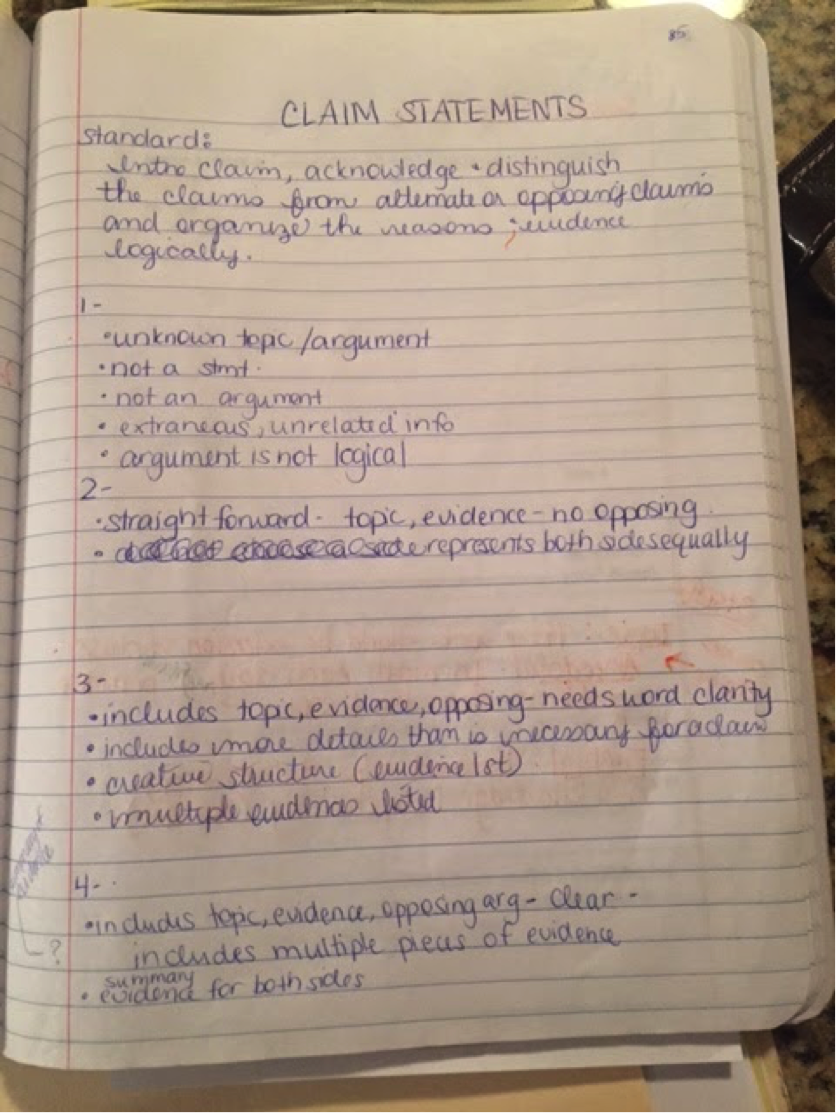 85
CLAIM STATEMENTS
standard:
Intro claim, acknowledge + distinguish
the claims from alternate or opposing claims
and organize the reasons ; evidence
logically.
1-
• unknown topic/argument
• not a stmt.
• not an argument
• extraneous, unrelated info
• argument is not logical
2-
• straight forward - topic, evidence - no opposing
• represents both sides equally
3-
• includes topic, evidence, opposing - needs word clarity
• includes more details than is necessary for a claim
• creative structure (evidence 1st)
• multiple evidences listed
4-
• includes topic, evidence, opposing arg - clear -
includes multiple pieces of evidence
?
summary
• evidence for both sides